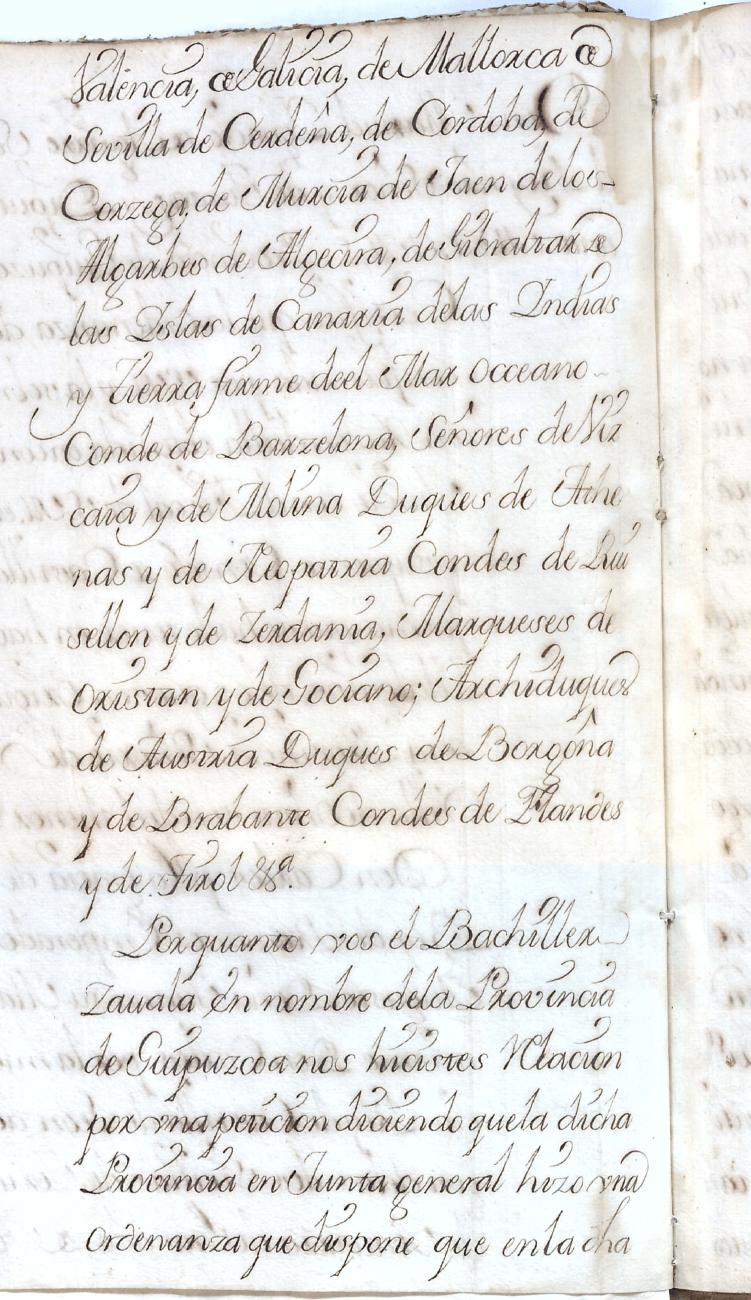 Valencia, de Galicia, de Mallorca de
Sevilla de Cerdeña, de Cordoba, de
Corzega, de Murcia de Jaen de los
Algarbes de Algecira, de Gibraltar de
las Yslas de Canaria delas Yndias
y tierra firme deel Mar occeano
Conde de Barzelona, Señores de Viz
caia y de Molina Duques de Athe
nas y de Neopatria Condes de Rui
sellon y de Zerdania, Marqueses de
Oristan y de Gociano; Archiduques
de Austria Duques de Borgoña
y de Brabante Condes de Flandes
y de Tirol &ª.
Por quanto vos el Bachiller
Zauala en nombre dela Provincia
de Guipuzcoa nos hicistes Relacion
por vna peticion diciendo que la dicha
Provincia en Junta general hizo vna
Ordenanza que dispone que en la dha